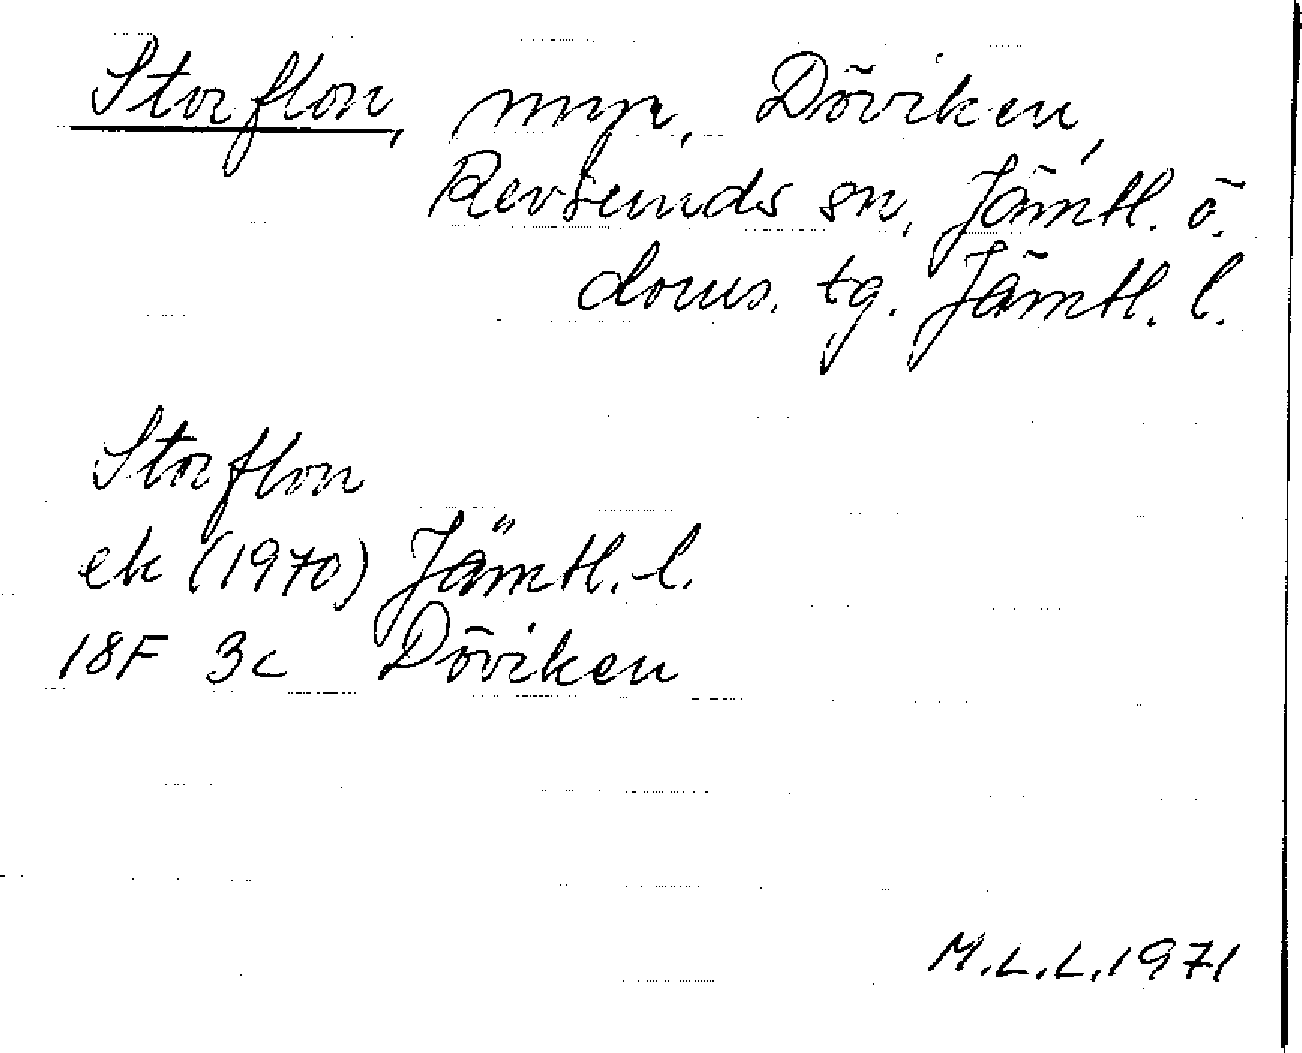 Storflon, myr, Döviken,
Revsunds sn, Jämtl. ö.
doms. tg. Jämtl. l.
Storflon
ek (1970) Jämtl. l.
18F 3c Döviken
M.L.L. 1971